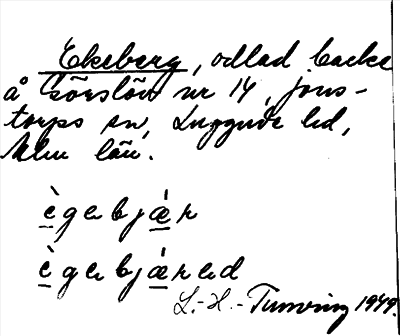 Ekeberg, odlad backe
å Görslöv nr 14, Jons-
torps sn, Luggude hd,
Mlm län.
è g e b j æ̀ r
è g e b j æ̀ r e d
L.-H.- Tunving 1949.